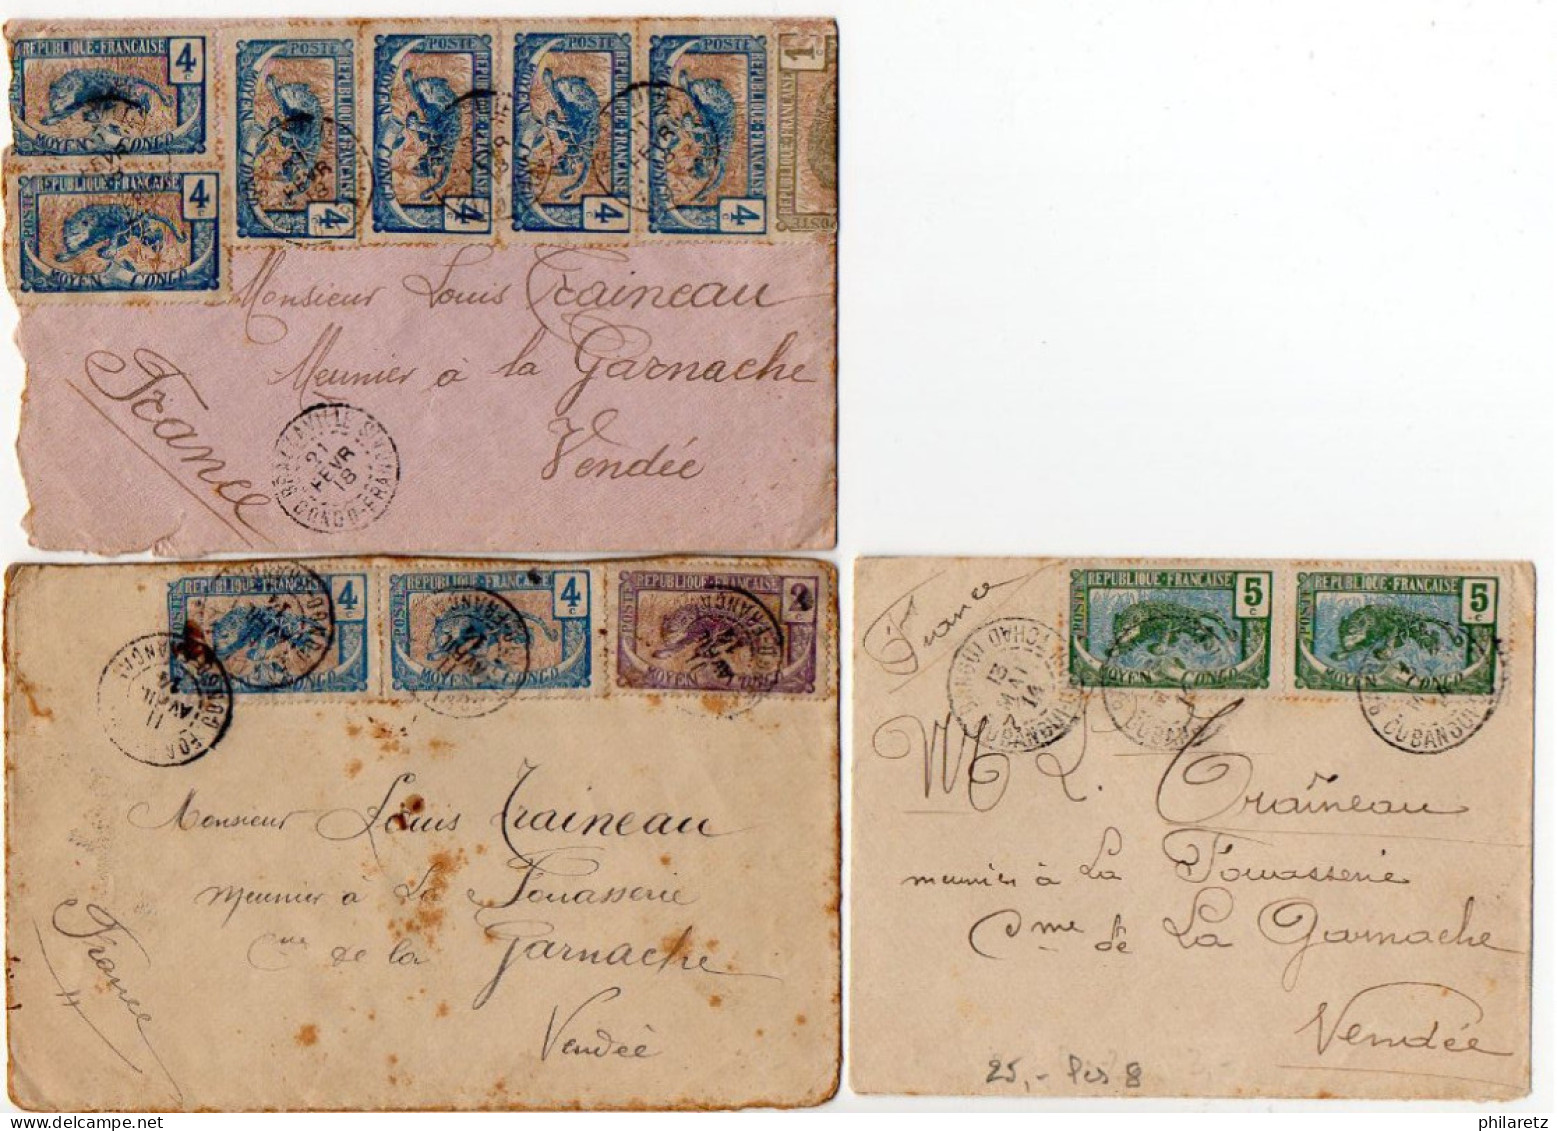 REPUBLIQUE-FRANÇAISE 4c
MOYEN CONGO
REPUBLIQUE-FRANÇAISE 4c
POSTE
MOYEN CONGO
POSTE
REPUBLIQUE-FRANÇAISE
MOYEN CONGO
4c
POSTE
REPUBLIQUE-FRANÇAISE
MOYEN CONGO
4c
POSTE
REPUBLIQUE-FRANÇAISE
MOYEN CONGO
4c
POSTE
REPUBLIQUE-FRANÇAISE
MOYEN CONGO
4c
1c
REPUBLIQUE-FRANÇAISE
POSTE
Monsieur Louis Traineau
Meunier à la Garnache
Vendée
France
BRAZZAVILLE
21
FEVR
18
CONGO-FRANÇAIS
REPUBLIQUE-FRANÇAISE 4c
POSTE
MOYEN CONGO
REPUBLIQUE-FRANÇAISE 4c
POSTE
MOYEN CONGO
REPUBLIQUE-FRANÇAISE 2c
POSTE
MOYEN CONGO
11
AVRIL
14
Monsieur Louis Traineau
meunier à La Fouasserie
Cne de la Garnache
Vendée
France
REPUBLIQUE-FRANÇAISE 5c
POSTE
MOYEN CONGO
REPUBLIQUE-FRANÇAISE 5c
POSTE
MOYEN CONGO
France
OUBANGUI
M L. Traîneau
meunier à La Fouasserie
Cme de La Garnache
Vendée
25,-
philaretz